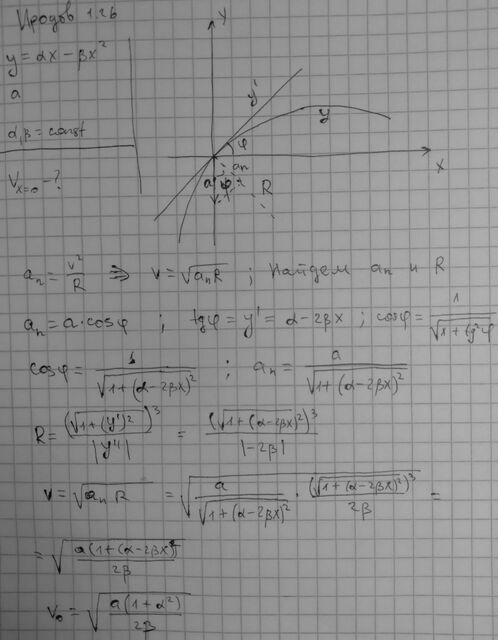 Иродов 1.26
y = αx − βx²
a
α, β = const
V_{x=0} − ?
y
y'
y
φ
a_n
a φ
R
x
a_n = v²/R ⇒ v = √(a_n R) ; Найдем a_n и R
a_n = a·cosφ ; tgφ = y' = α − 2βx ; cosφ = 1/√(1 + tg²φ)
cosφ = 1/√(1 + (α − 2βx)²) ; a_n = a/√(1 + (α − 2βx)²)
R = (√(1 + (y')²))³/|y''| = (√(1 + (α − 2βx)²))³/|−2β|
v = √(a_n R) = √(a/√(1 + (α − 2βx)²) · (√(1 + (α − 2βx)²))³/2β) =
= √(a(1 + (α − 2βx)²)/2β)
v₀ = √(a(1 + α²)/2β)